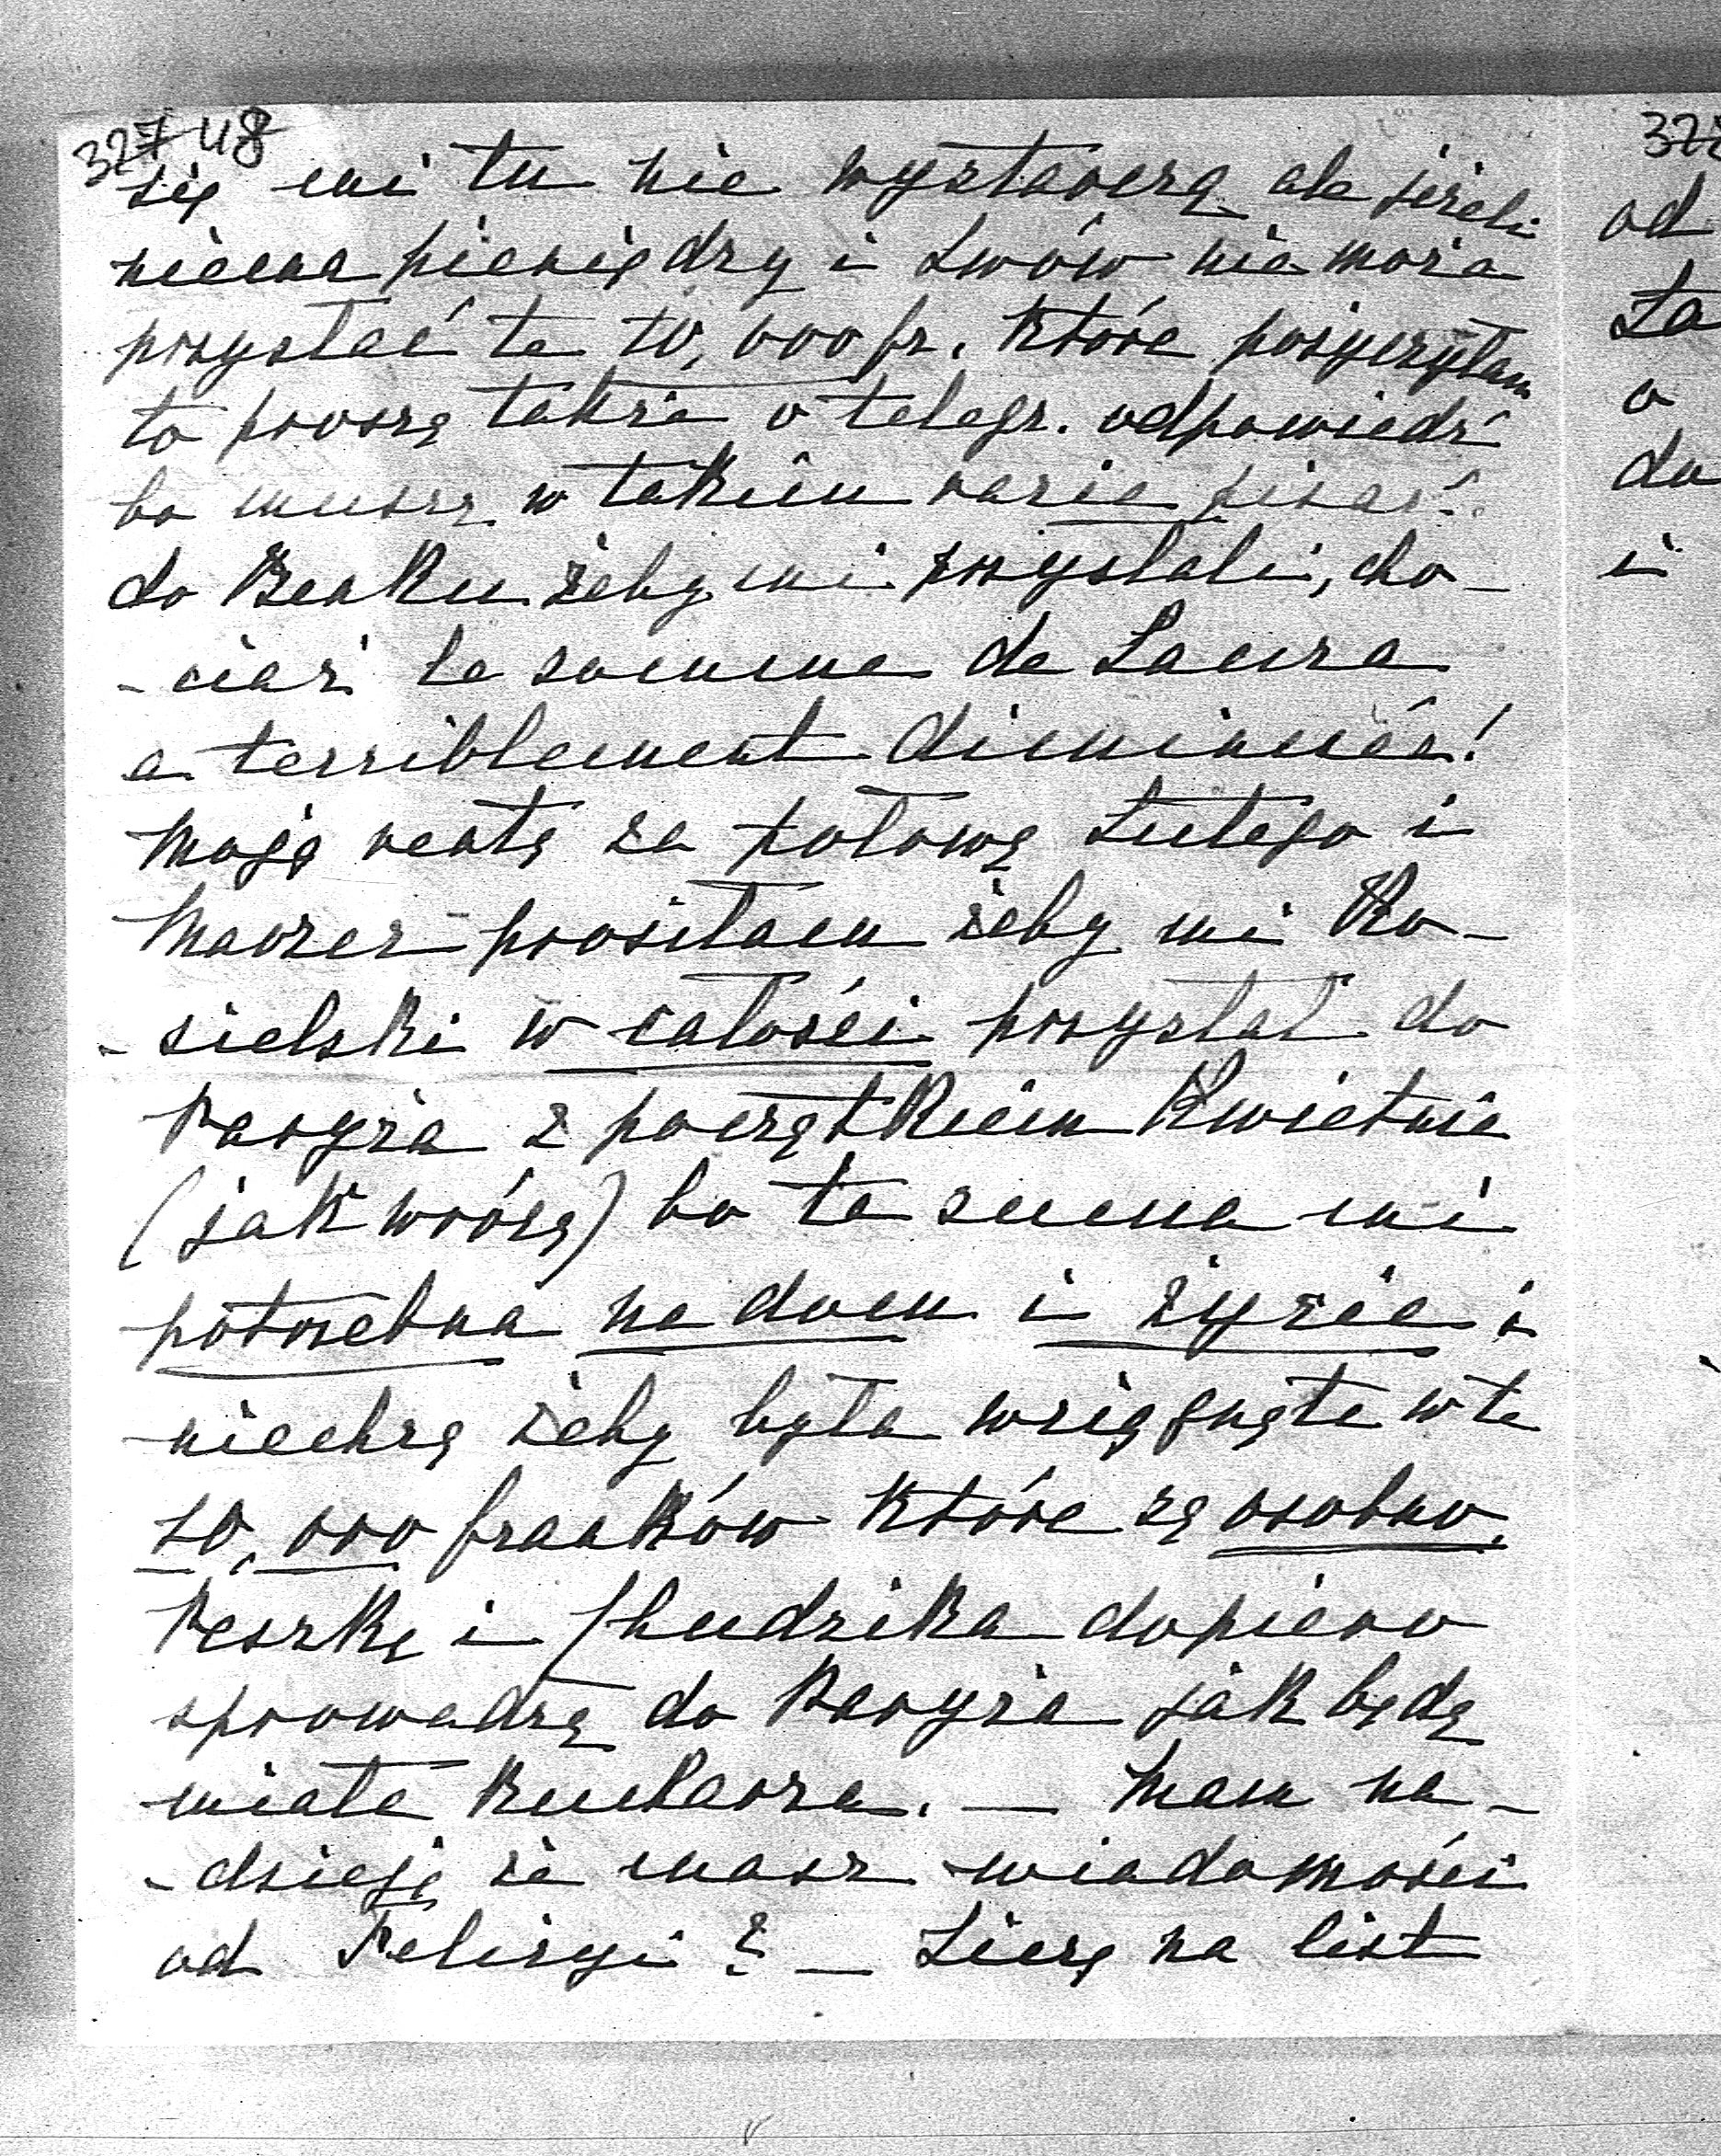 327 48
się mi tu nie wystarczą ale jeżeli
niema pieniędzy i Lwów nie może
przysłać te 10,000 fr. które pożyczyłam
to proszę także o telegr. odpowiedź
bo muszę w takim razie pisać
do Banku żeby mi przysłali, cho-
-ciaż la somme de Laura
a terriblement diminuée!
Moję rentę za połowę Lutego i
Marzec prosiłam żeby mi Ko-
-sielski w całości przysłał do
Paryża z początkiem Kwietnia
(jak wrócę) bo ta suma mi
potrzebna na dom i życie i
niechcę żeby była wziągnięta w te
10,000 franków które są osobno.
Peszkę i Chudzika dopiero
sprowadzę do Paryża jak będę
miała kucharza. — Mam na-
-dzieję że masz wiadomości
od Felicyi? — Liczę na list
od
La
o
do
i